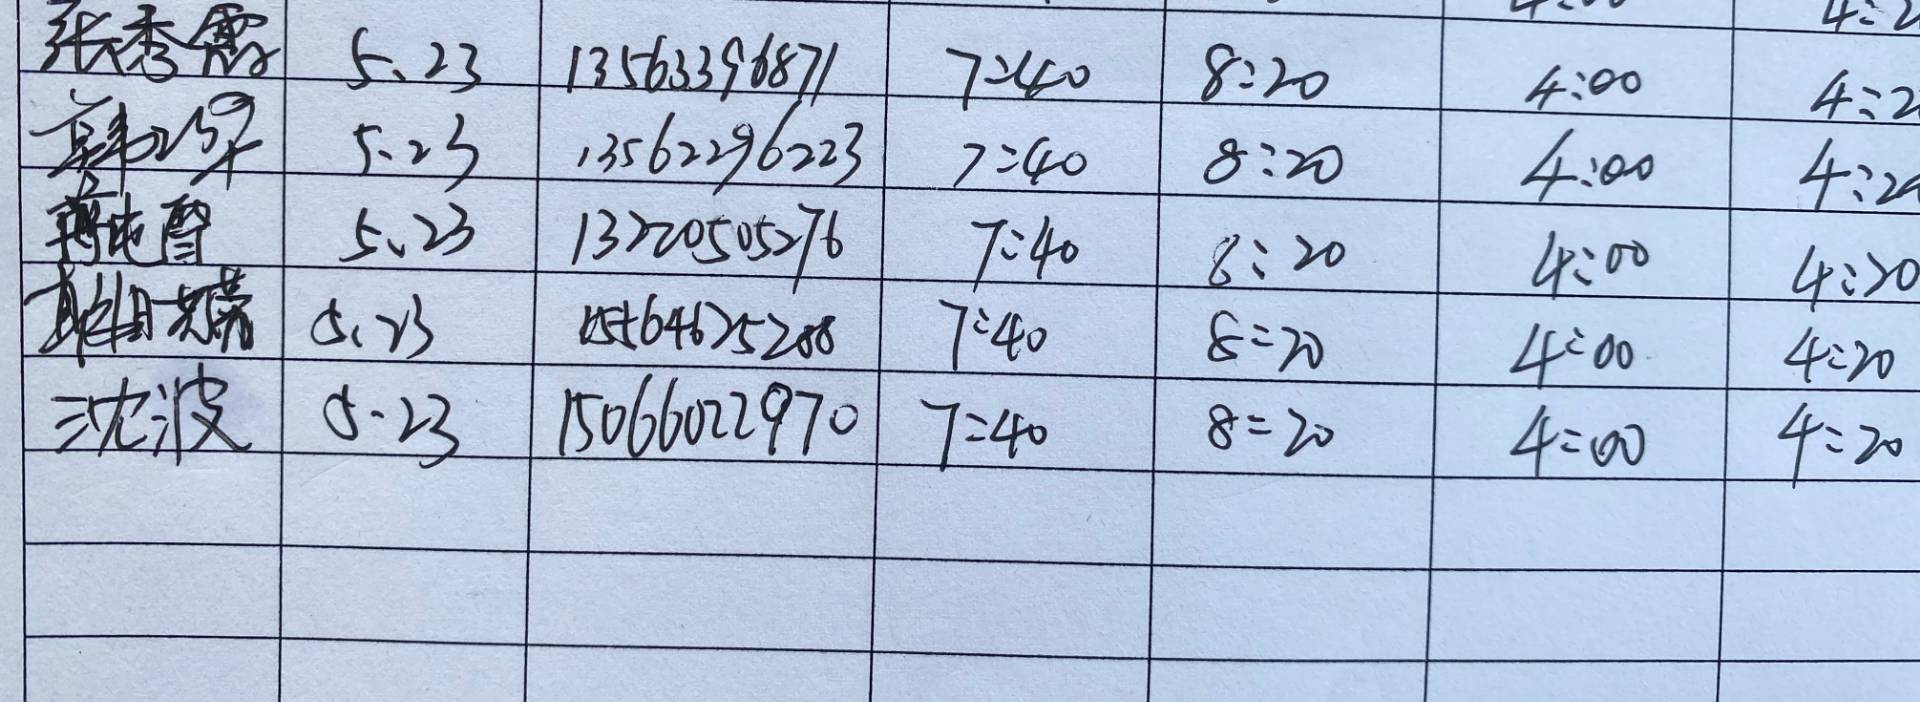 4:00 4:2
张秀霞 5.23 13563396871 7:40 8:20 4:00 4:2
5.23 13562296223 7:40 8:20 4:00 4:20
5.23 13220505276 7:40 8:20 4:00 4:20
5.23 7:40 8:20 4:00 4:20
沈波 5.23 15066022970 7:40 8:20 4:00 4:20